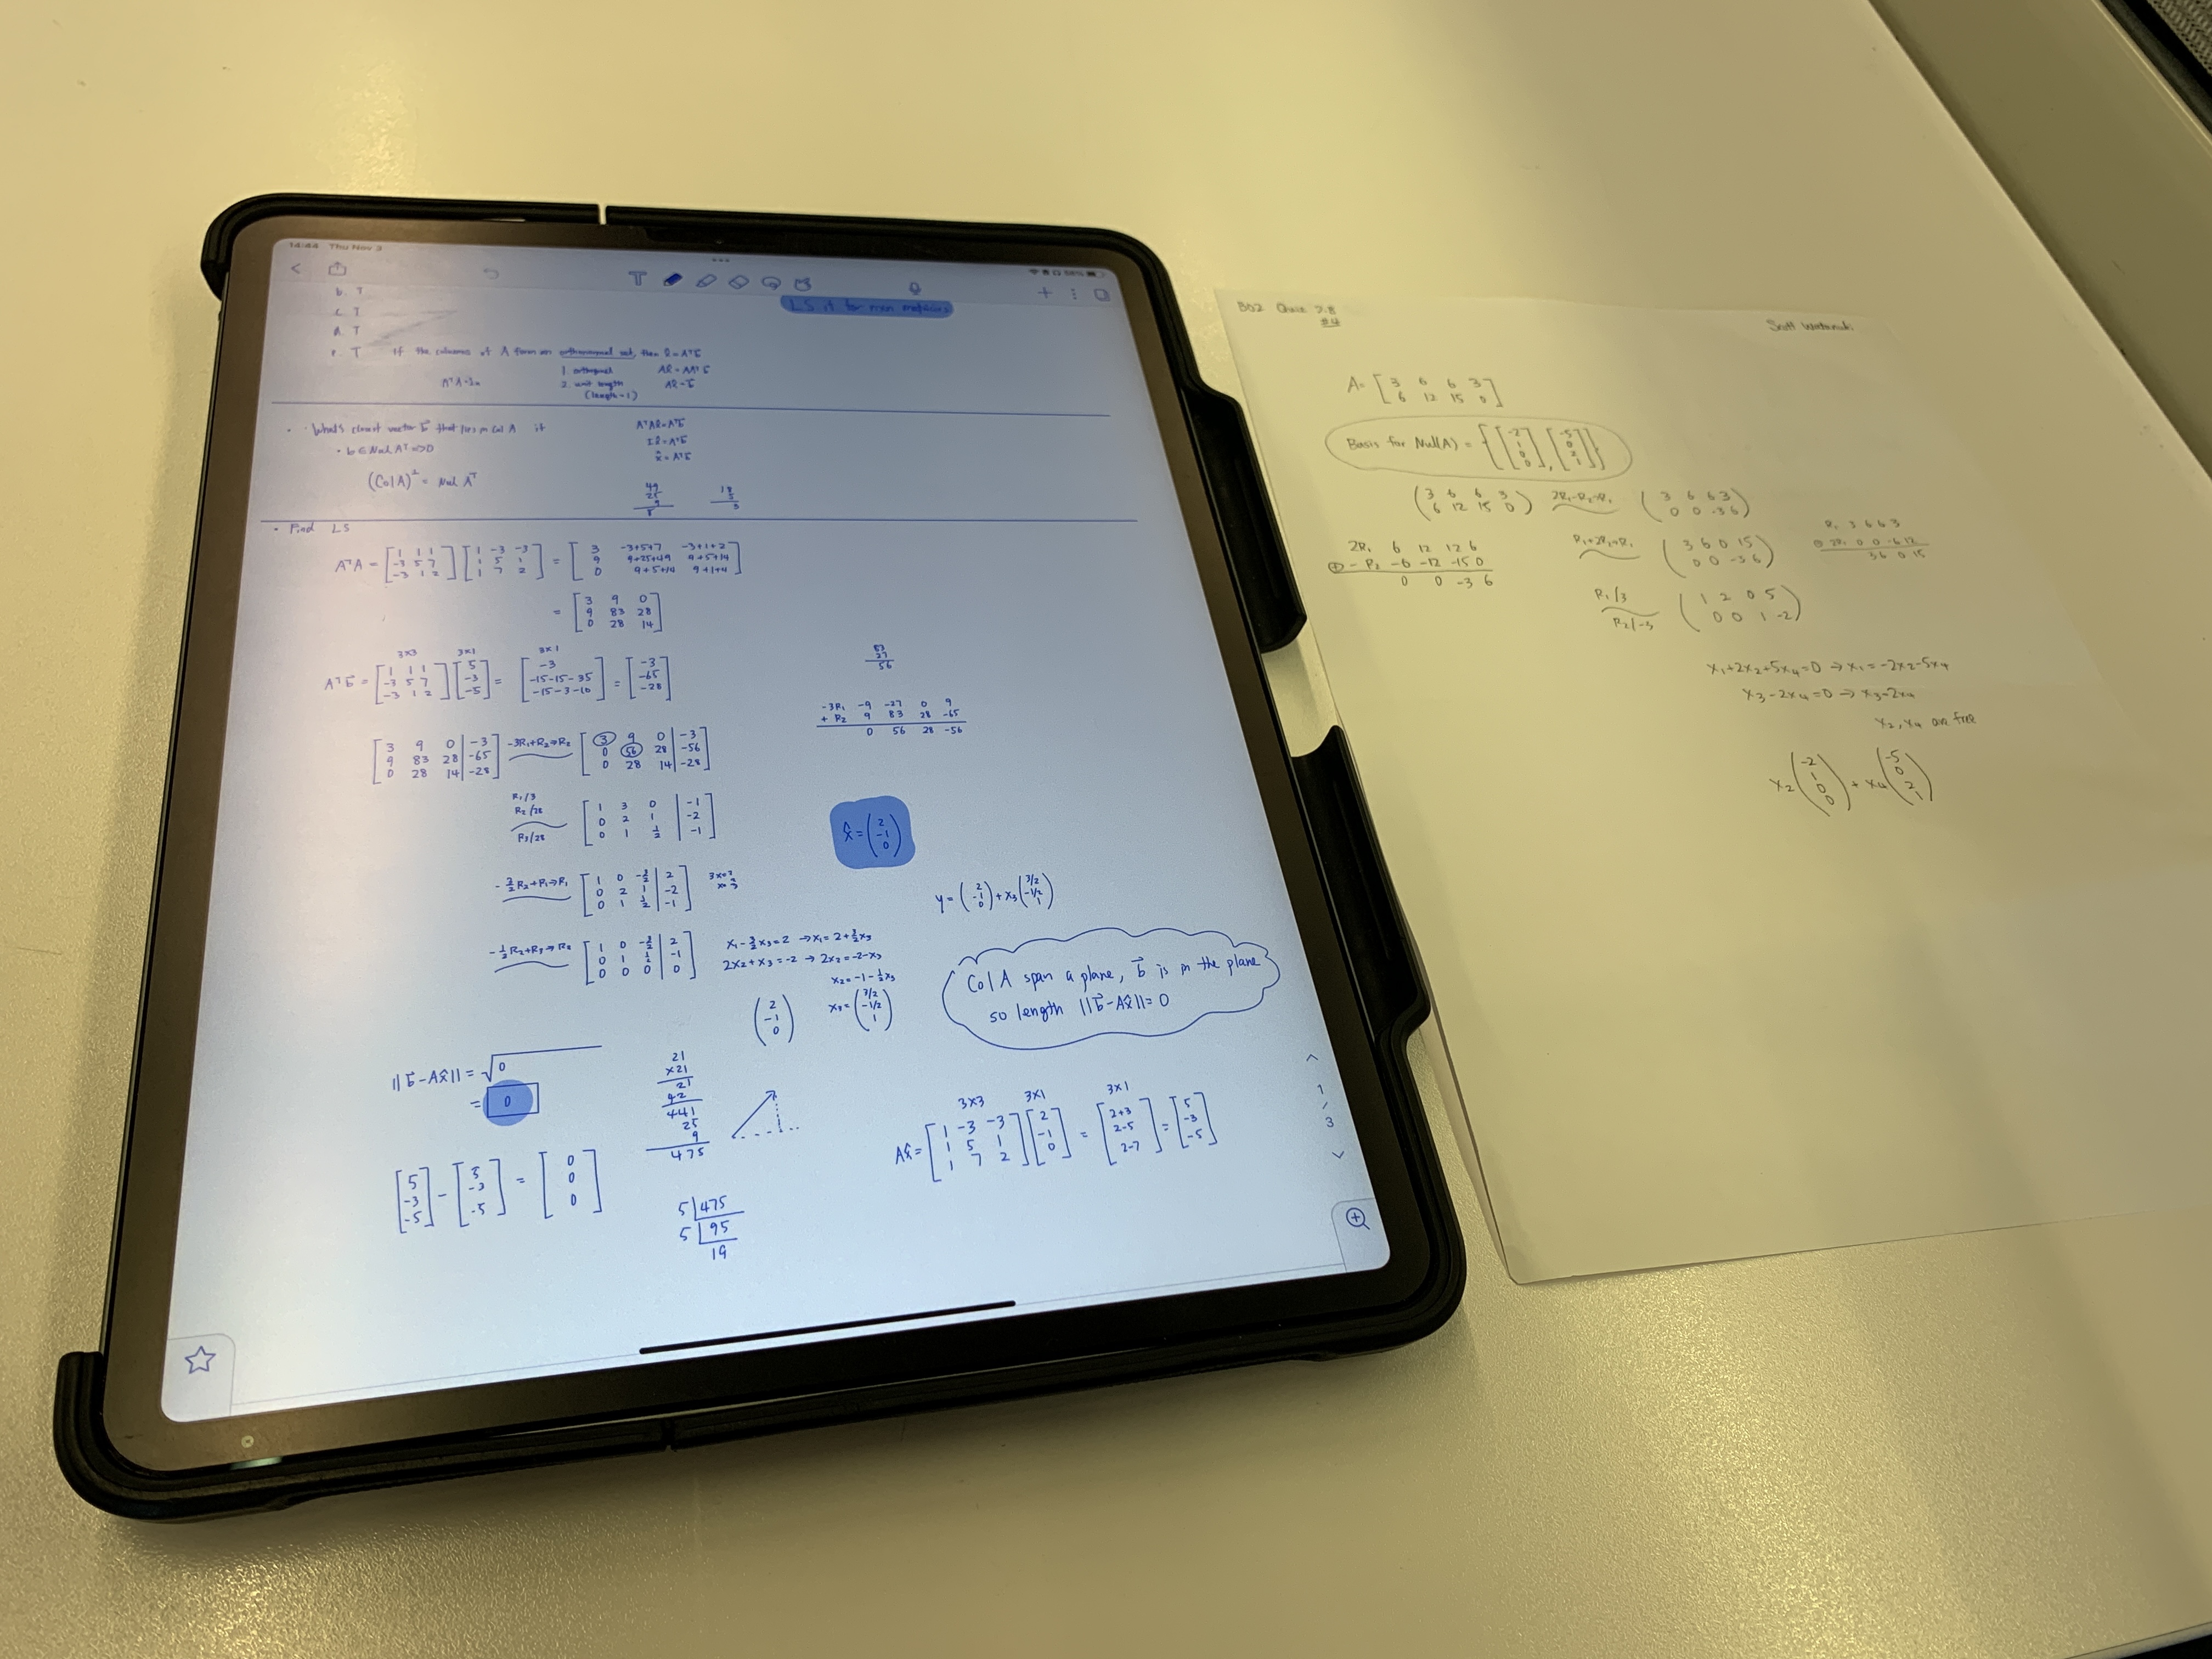 14:44 Thu Nov 3
98%
LS it for mxn matrices
b. T
c. T
d. T
e. T If the columns of A form an orthonormal set, then x̂ = Aᵀb⃗
1. orthogonal
2. unit length
(length = 1)
AᵀA = In
Ax̂ = AAᵀb⃗
Ax̂ = b⃗
• What's closest vector b⃗ that lies in Col A if
• b ∈ Nul Aᵀ => 0
(Col A)⊥ = Nul Aᵀ
AᵀAx̂ = Aᵀb⃗
Ix̂ = Aᵀb⃗
x̂ = Aᵀb⃗
49
25
9
• Find LS
AᵀA = [1 1 1; -3 5 7; -3 1 2] [1 -3 -3; 1 5 1; 1 7 2] = [3 -3+5+7 -3+1+2; 9 9+25+49 9+5+14; 0 9+5+14 9+1+4]
= [3 9 0; 9 83 28; 0 28 14]
3x3 3x1 3x1
Aᵀb⃗ = [1 1 1; -3 5 7; -3 1 2] [5; -3; -5] = [-3; -15-15-35; -15-3-10] = [-3; -65; -28]
83
27
56
-3R₁ -9 -27 0 9
+ R₂ 9 83 28 -65
0 56 28 -56
[3 9 0 | -3; 9 83 28 | -65; 0 28 14 | -28] -3R₁+R₂→R₂ [3 9 0 | -3; 0 56 28 | -56; 0 28 14 | -28]
R₁/3
R₂/28
R₃/28
[1 3 0 | -1; 0 2 1 | -2; 0 1 1/2 | -1]
x̂ = (2; -1; 0)
-3/2R₂+R₁→R₁ [1 0 -3/2 | 2; 0 2 1 | -2; 0 1 1/2 | -1]
y = (2; -1; 0) + x₃(3/2; -1/2; 1)
-1/2R₂+R₃→R₃ [1 0 -3/2 | 2; 0 1 1/2 | -1; 0 0 0 | 0]
x₁ - 3/2x₃ = 2 → x₁ = 2 + 3/2x₃
2x₂ + x₃ = -2 → 2x₂ = -2 - x₃
x₂ = -1 - 1/2x₃
(2; -1; 0) x₃ = (3/2; -1/2; 1)
Col A span a plane, b⃗ is in the plane
so length ||b⃗ - Ax̂|| = 0
||b⃗ - Ax̂|| = √0
= 0
21
x21
21
42
441
25
9
475
3x3 3x1 3x1
Ax̂ = [1 -3 -3; 1 5 1; 1 7 2] [2; -1; 0] = [2+3; 2-5; 2-7] = [5; -3; -5]
[5; -3; -5] - [5; -3; -5] = [0; 0; 0]
5 | 475
5 | 95
19
1
/
3
B02 2.8
#4
Scott Watanuki
A = [3 6 6 3; 6 12 15 0]
Basis for Nul(A) = {[-2; 1; 0; 0], [-5; 0; 2; 1]}
(3 6 6 3; 6 12 15 0) 2R₁-R₂→R₂ (3 6 6 3; 0 0 -3 6)
2R₁ 6 12 12 6
⊕ - R₂ -6 -12 -15 0
0 0 -3 6
R₁+2R₂→R₁ (3 6 0 15; 0 0 -3 6)
R₁ 3 6 6 3
⊕ 2R₂ 0 0 -6 12
3 6 0 15
R₁/3
R₂/-3
(1 2 0 5; 0 0 1 -2)
x₁+2x₂+5x₄=0 → x₁=-2x₂-5x₄
x₃-2x₄=0 → x₃=2x₄
x₂, x₄ are free
x₂(-2; 1; 0; 0) + x₄(-5; 0; 2; 1)